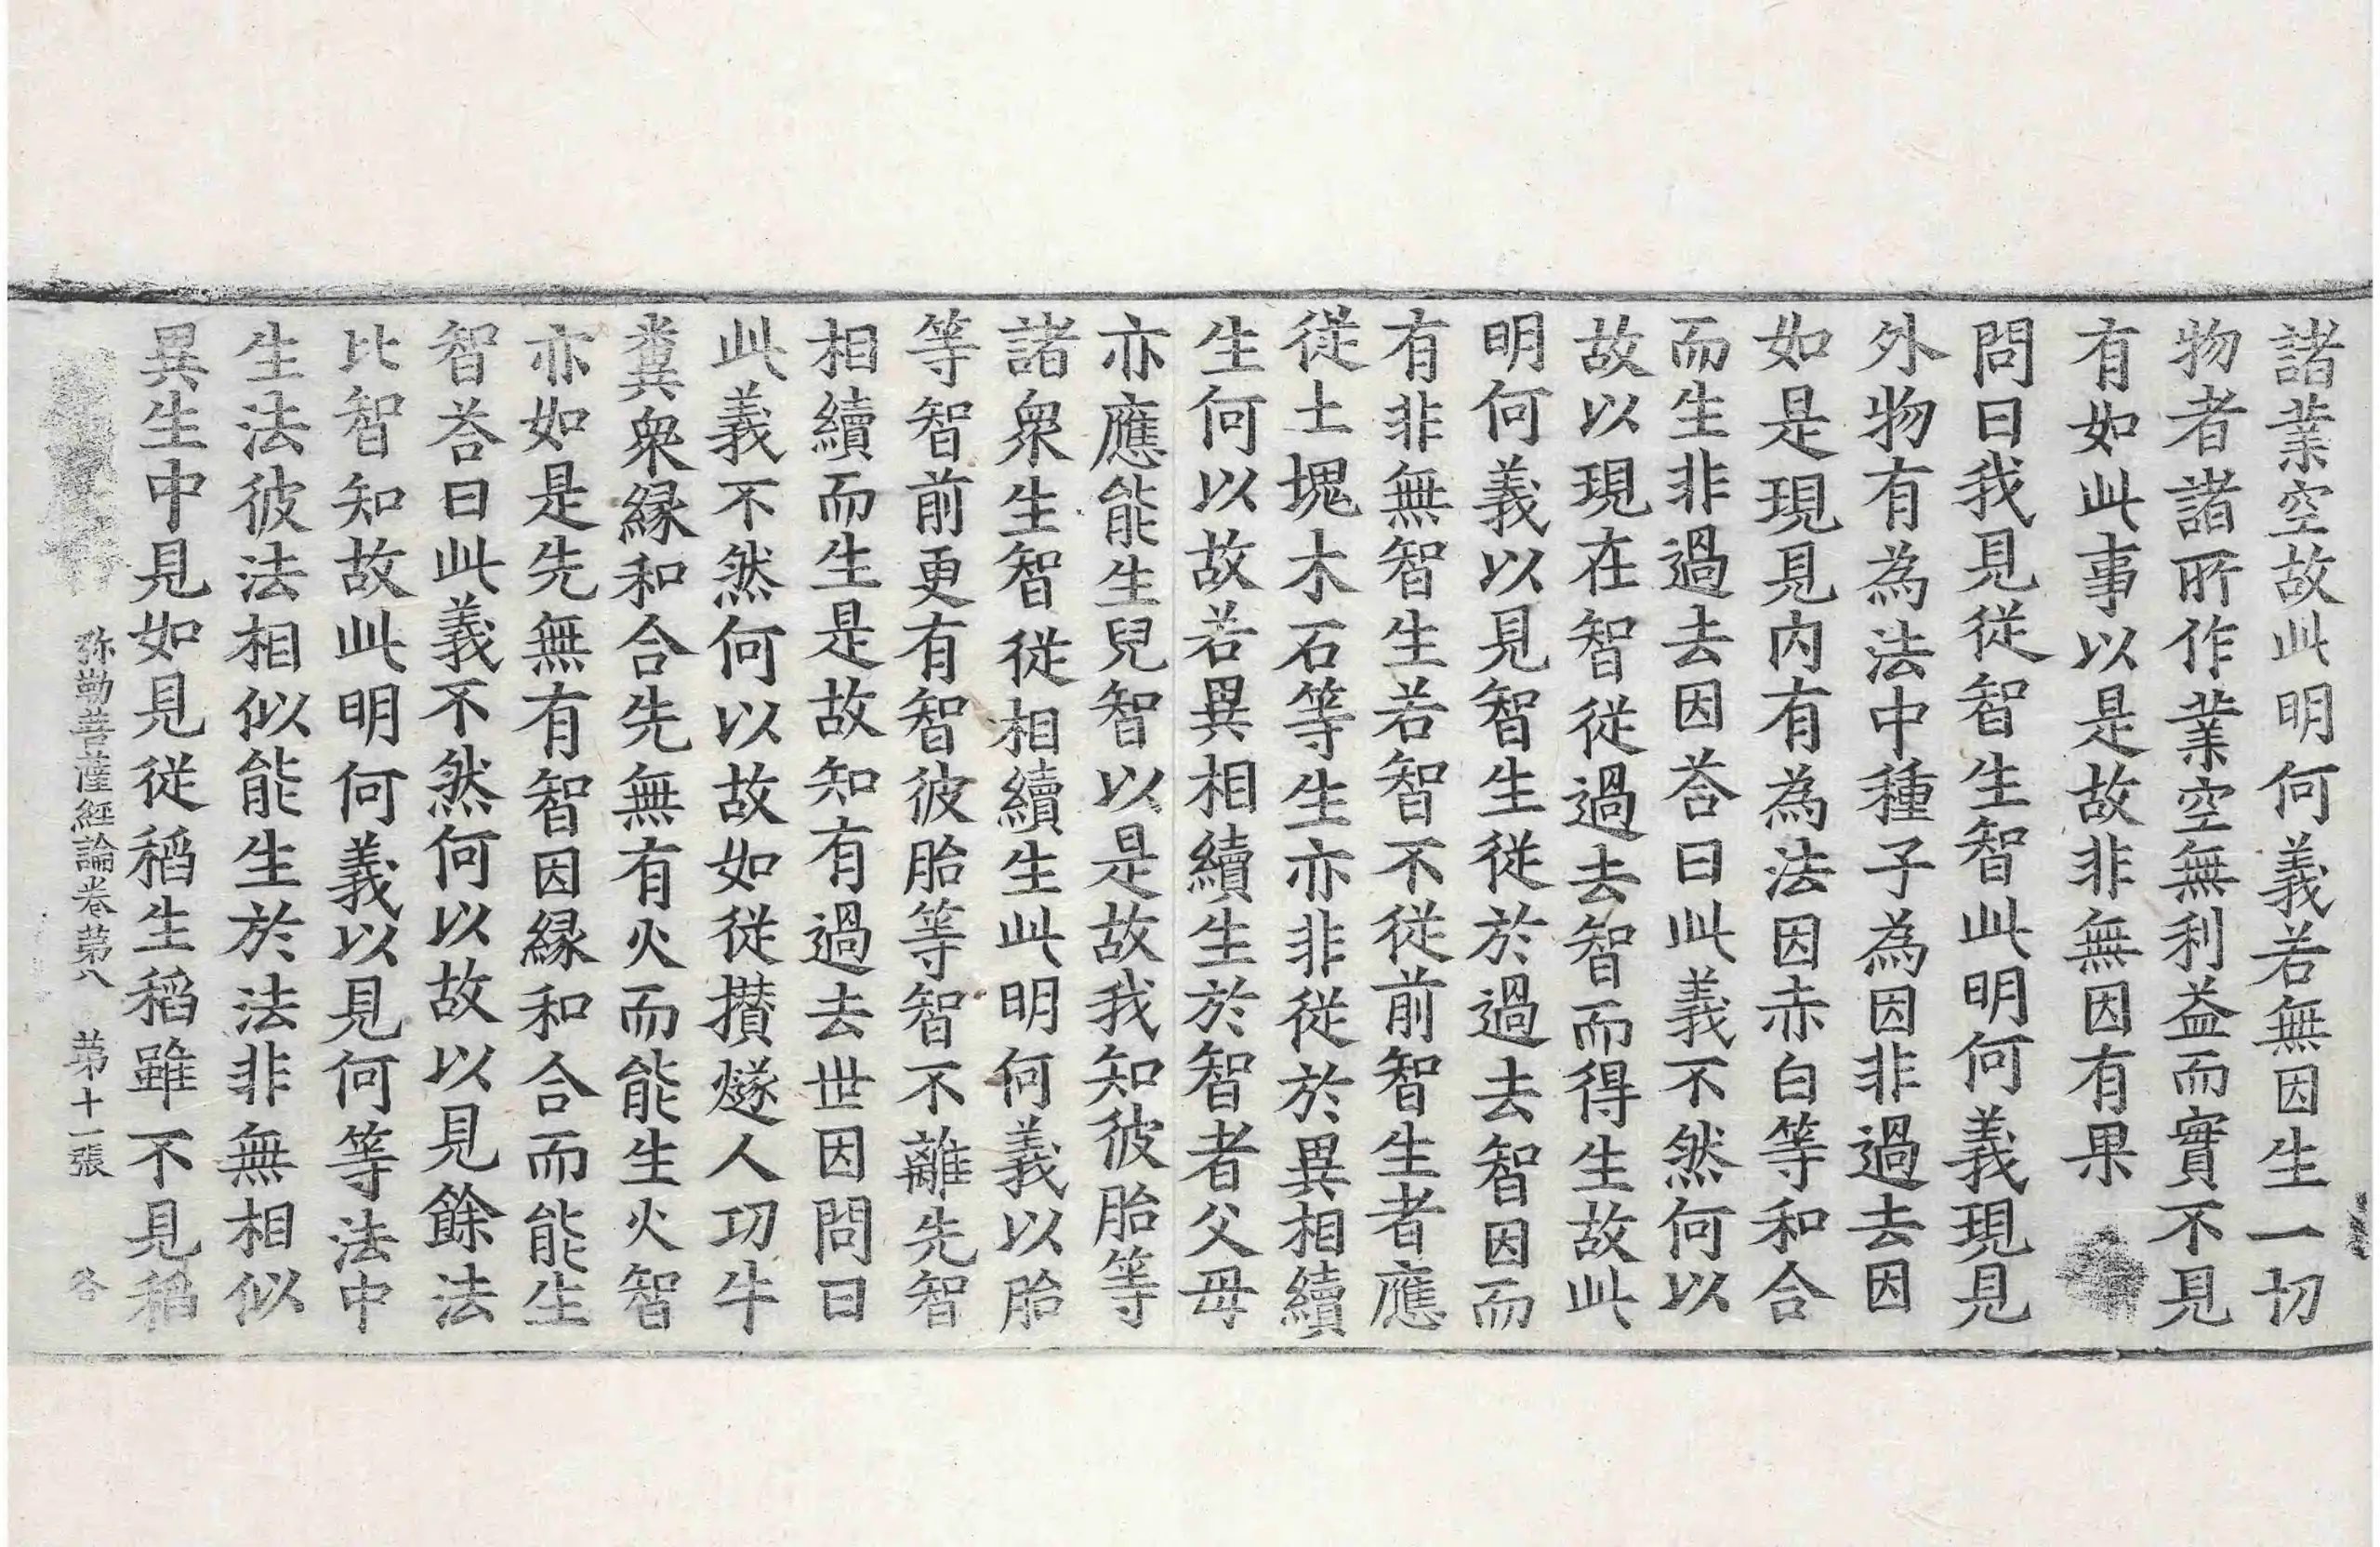 諸業空故此明何義若無因生一切
物者諸所作業空無利益而實不見
有如此事以是故非無因有果
問曰我見從智生智此明何義現見
外物有為法中種子為因非過去因
如是現見內有為法因赤白等和合
而生非過去因荅曰此義不然何以
故以現在智從過去智而得生故此
明何義以見智生從於過去智因而
有非無智生若智不從前智生者應
從土塊木石等生亦非從於異相續
生何以故若異相續生於智者父母
亦應能生兒智以是故我知彼胎等
諸衆生智從相續生此明何義以胎
等智前更有智彼胎等智不離先智
相續而生是故知有過去世因問曰
此義不然何以故如從攅燧人功牛
糞衆縁和合先無有火而能生火智
亦如是先無有智因縁和合而能生
智荅曰此義不然何以故以見餘法
比智知故此明何義以見何等法中
生法彼法相似能生於法非無相似
異生中見如見從稻生稻雖不見稻
弥勒菩薩經論卷第八 第十一張 各